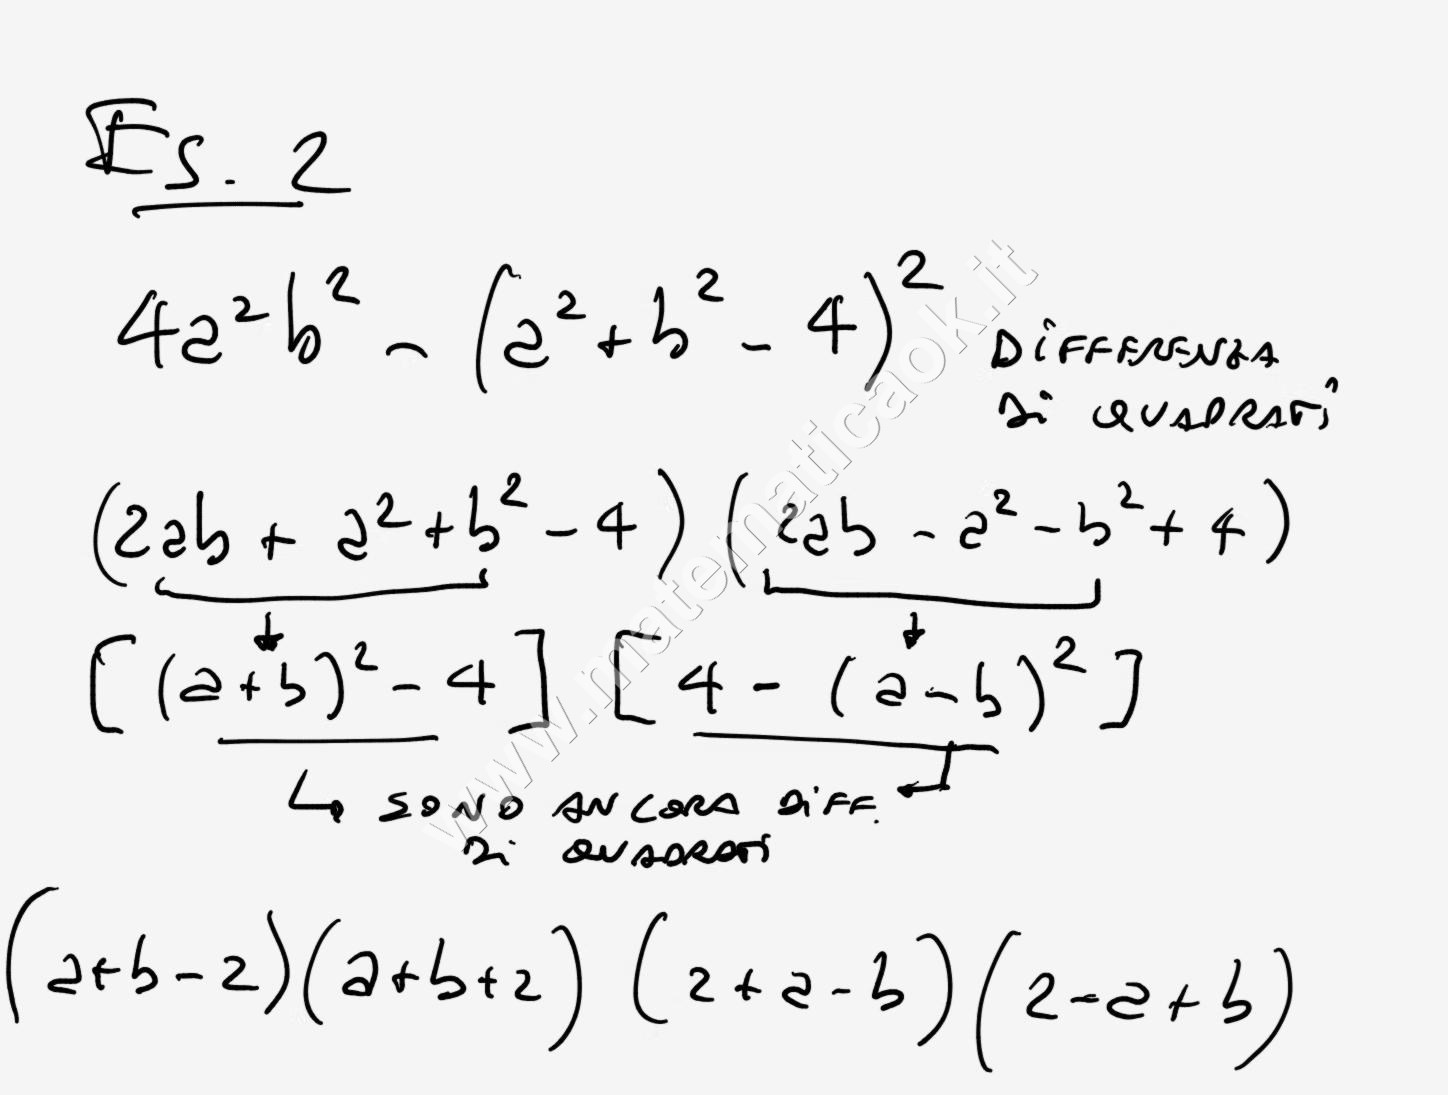 Es. 2
4a²b² - (a² + b² - 4)²
DIFFERENZA
DI QUADRATI
(2ab + a² + b² - 4) (2ab - a² - b² + 4)
[(a+b)² - 4] [4 - (a-b)²]
↳ SONO ANCORA DIFF.
DI QUADRATI
(a+b-2)(a+b+2) (2+a-b)(2-a+b)
www.matematicaok.it